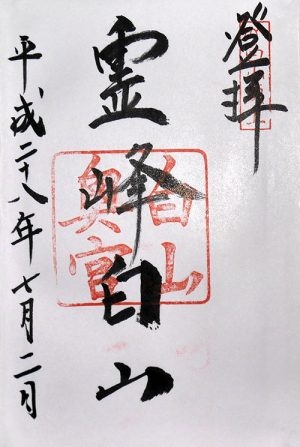 登拝
霊峰白山
白山
奥宮
平成二十八年七月二日